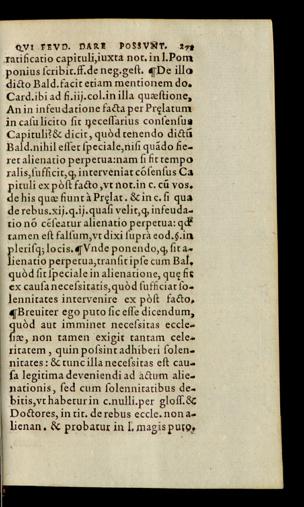 QVI FEVD. DARE POSSVNT. 278
ratificatio capituli, iuxta not. in l. Pom
ponius scribit. ff. de neg. gest. ¶De illo
dicto Bald. facit etiam mentionem do.
Card. ibi ad fi. iij. col. in illa quæstione,
An in infeudatione facta per Pręlatum
in casu licito sit necessarius consensus
Capituli? & dicit, quòd tenendo dictū
Bald. nihil esset speciale, nisi quādo fie-
ret alienatio perpetua: nam si fit tempo
ralis, sufficit, q, interveniat cōsensus Ca
pituli ex pòst facto, vt not. in c. cū vos.
de his quæ fiunt à Pręlat. & in c. si qua
de rebus. xij. q. ij. quasi velit, q, infeuda-
tio nō cēseatur alienatio perpetua: qđ
tamen est falsum, vt dixi suprà eod. §. in
plerisq; locis. ¶Vnde ponendo, q, sit a-
lienatio perpetua, transit ipse cum Bal.
quòd sit speciale in alienatione, quę fit
ex causa necessitatis, quòd sufficiat so-
lennitates intervenire ex pòst facto.
¶Breuiter ego puto sic esse dicendum,
quòd aut imminet necessitas eccle-
siæ, non tamen exigit tantam cele-
ritatem, quin possint adhiberi solen-
nitates: & tunc illa necessitas est cau-
sa legitima deveniendi ad actum alie-
nationis, sed cum solennitatibus de-
bitis, vt habetur in c. nulli. per gloss. &
Doctores, in tit. de rebus eccle. non a-
lienan. & probatur in l. magis puto.